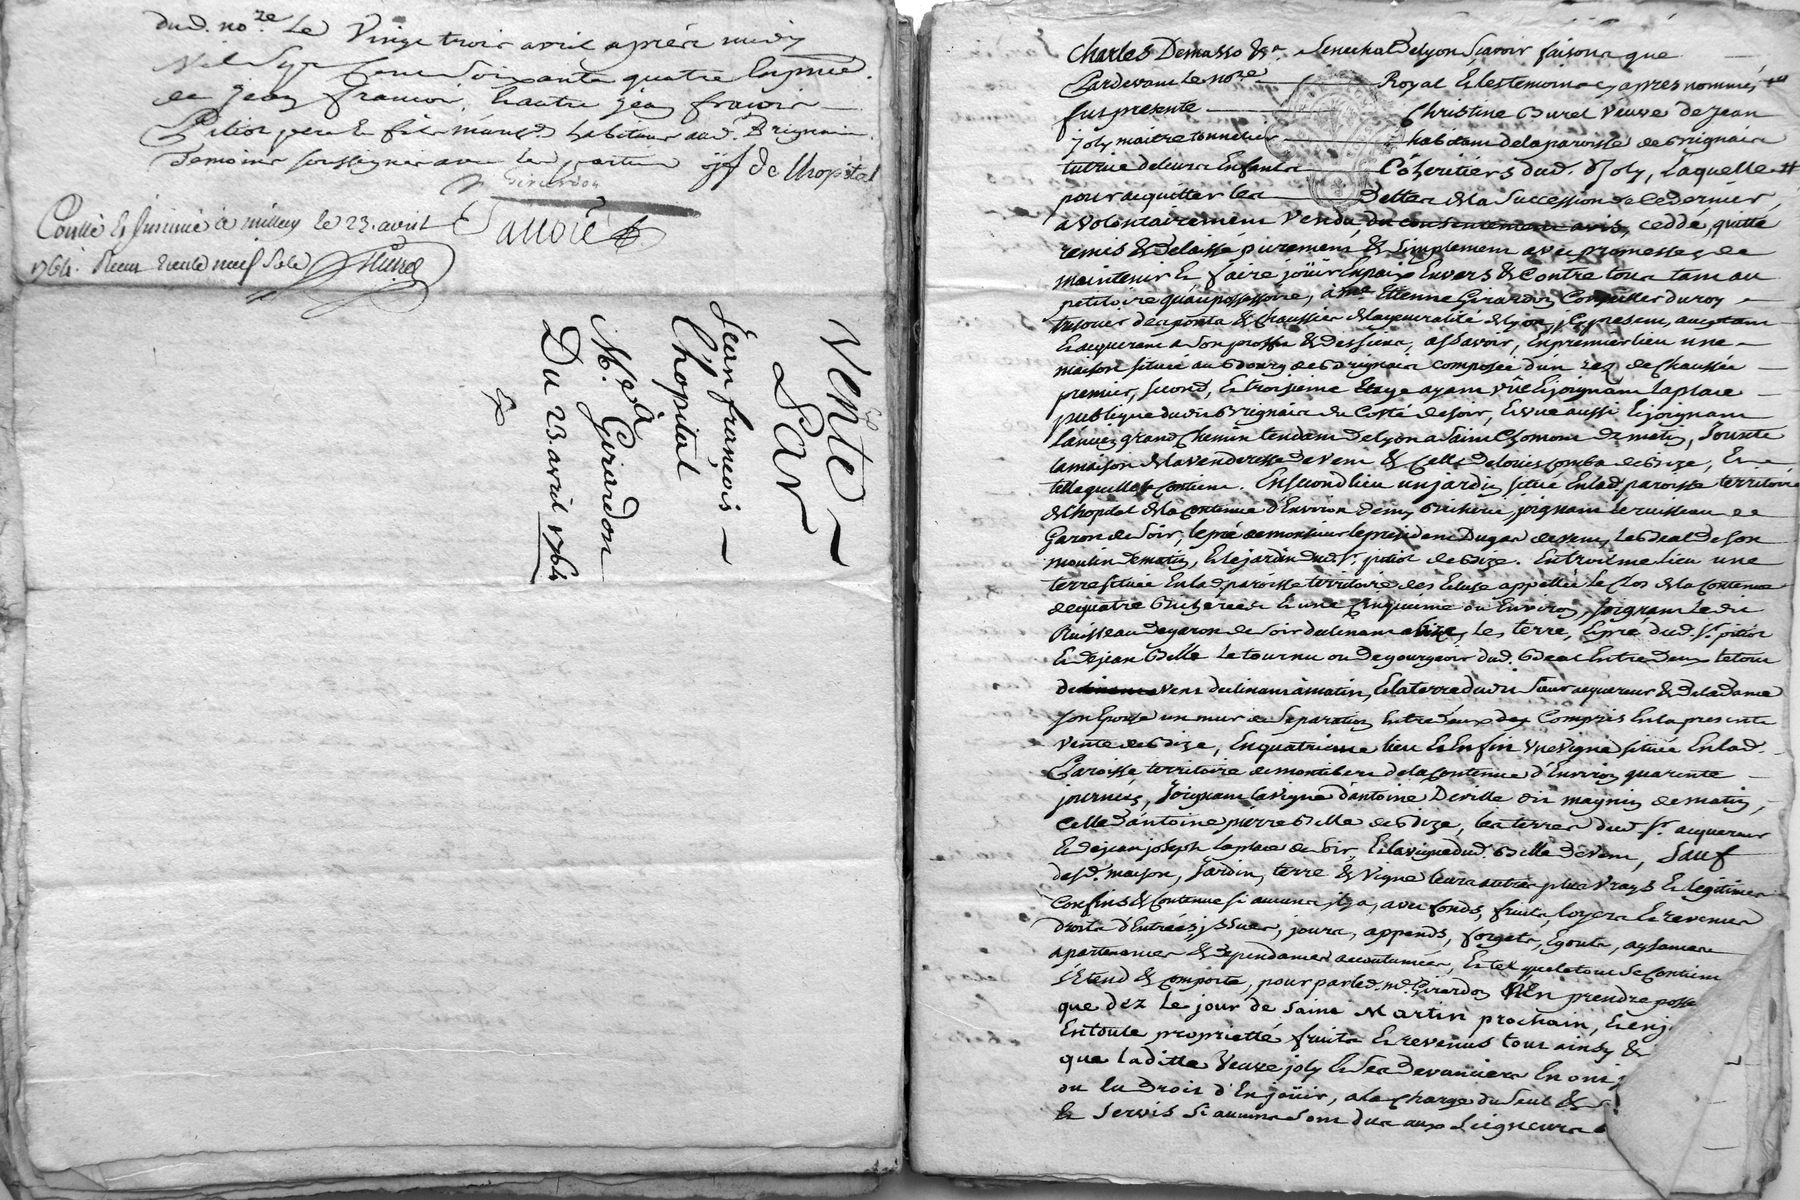 dud. no.re Le Vingt trois avril après midy
Mil Sept Cent Soixante quatre En présce.
de jean francois, Et autre jean francois
Pitiot pere Et fils habitans aud. Brignais
Temoins soussignes avec les parties jjf de Lhopital
Girardon
Conllé Et Insinué à millery le 23. avril
1764. Reçu trente neuf sols
Vente
Par
Jean françois
L'hopital
à
Mr. Girardon
Du 23. avril 1764
Charles Demasso &a. Senechal de Lyon Scavoir faisons que
Pardevant Le nore Royal Et les temoins cy apres nommés
fut presente Christine Buret Veuve de Jean
joly maitre tonnelier habitant de la paroisse de Brignais
tutrice de leurs Enfants Cohéritiers dud. Sr joly, Laquelle #
pour acquitter les Dettes de la Succession de Ce dernier,
a Volontairement Vendu, ceddé, quitté
remis & Delaissé purement & Simplement avec promesses de
maintenir Et faire joüir En paix Envers & Contre tous tant au
petitoire qu'au possessoire, à me. Etienne Girardon Conseiller du roy
tresorier des ponts & chaussées de la generalité de Lyon, jcy present, acceptant
Et acquerant a Son proffit & des siens, asSavoir, En premier lieu une
maison située au Bourg de Brignais composée d'un rez de chaussée
premier, second, Et troisieme Etage ayant vüe Et joignant la place
publique dudit Brignais du Costé de soir, Et vue aussi Et joignant
l'ancien grand Chemin tendant de Lyon a Saint Chomont de matin, Jointe
la maison de la venderesse de vent & Celle de Louis Comba de Bize, Et
telle quelle se Contient. En second lieu un jardin situé En lad. paroisse territoire
de L'hopital de la Contenue d'Environ demy Bicherée, joignant Le ruisseau de
Garon de Soir, le pré de monsieur le president Dugas de vent, Le Beal de Son
moulin de matin, Et le jardin dud. Sr. pitiot de Bize. En troisieme lieu une
terre située En lad. paroisse territoire des Ecluse appellée Le Clos de la Contenue
de quatre Bicherées Et une Cinquieme ou Environ, Joignant Ledit
Ruisseau de garon de Soir declinant a Bize, Les terre, Et pré dud. Sr. pitiot
Et de jean Bille Le tournu ou De gourgeois dud. Beal Entre Deux le tout
de vent declinant à matin, Et la terre dudit Sieur acquereur & de la Dame
son Epouse un mur de Separation Entre deux Compris En la presente
Vente de Bize, En quatrieme lieu Et Enfin Une Vigne située En lad.
Paroisse territoire de montibert de la Contenue d'Environ quarente
journées, Joignant la vigne d'antoine Deville dit magnin de matin,
Celle d'antoine pierre Bille de Bize, Les terres dud. Sr. acquereur
Et de jean joseph Laplace de Soir, Et la vigne dud. Bille de Vent, Sauf
desd. maison, Jardin, terre & Vigne leurs autres plus Vrays Et Legitimes
Confins & Contenue si aucuns il y a, avec fonds, fruits, loyers Et revenus
droits d'Entrées, jssues, jours, appends, forgets, Egouts, aysances
apartenances & Dépendances accoutumées, Et tel que le tout Se Contient
S'Etend & Comporte, pour par led. me. Girardon N'En prendre posse
que dez Le jour de Saint Martin prochain, Et En j
En toute proprietté fruits Et revenus tout ainsy &
que laditte Veuve joly Et Ses Devanciers En ont j
ou Eu Droit d'En joüir, a la Charge du Seul &
& Servis Si aucuns Sont dus aux Seigneurs